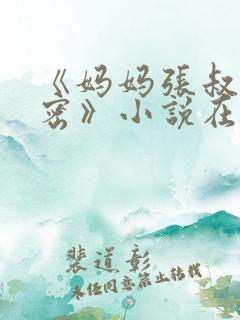 《妈妈張叔
密》小説在
裴道彰
未任同意禁止转载